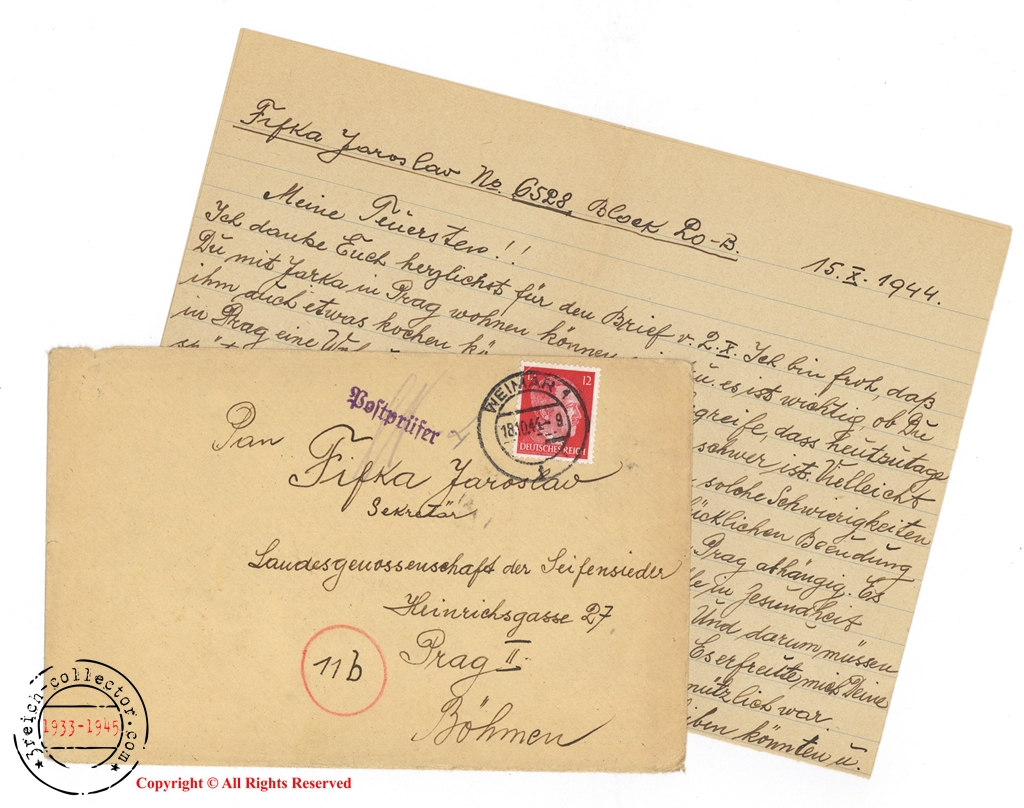 Fifka Jaroslav No. 6528, Block 20-B.
15.X.1944.
Meine Teuersten!!
Ich danke Euch herzlichst für den Brief v. 2.X. Ich bin froh, daß
Du mit Jarka in Prag wohnen können
u es ist wichtig, ob Du
ihm auch etwas kochen
greife, dass heutzutage
in Prag eine
schwer ist. Vielleicht
solche Schwierigkeiten
ücklichen Beendung
Prag abhängig. Es
in Gesundheit
Und darum müssen
Es erfreute mich Deine
nützlich war
iben könnten u.
Postprüfer
WEIMAR 1
18.10.44 - 9
12
DEUTSCHES REICH
Pan
Fifka Jaroslav
Sekretär
Landesgenossenschaft der Seifensieder
Heinrichsgasse 27
Prag II.
11b
Böhmen
3reich-collector.com
1933-1945
Copyright © All Rights Reserved